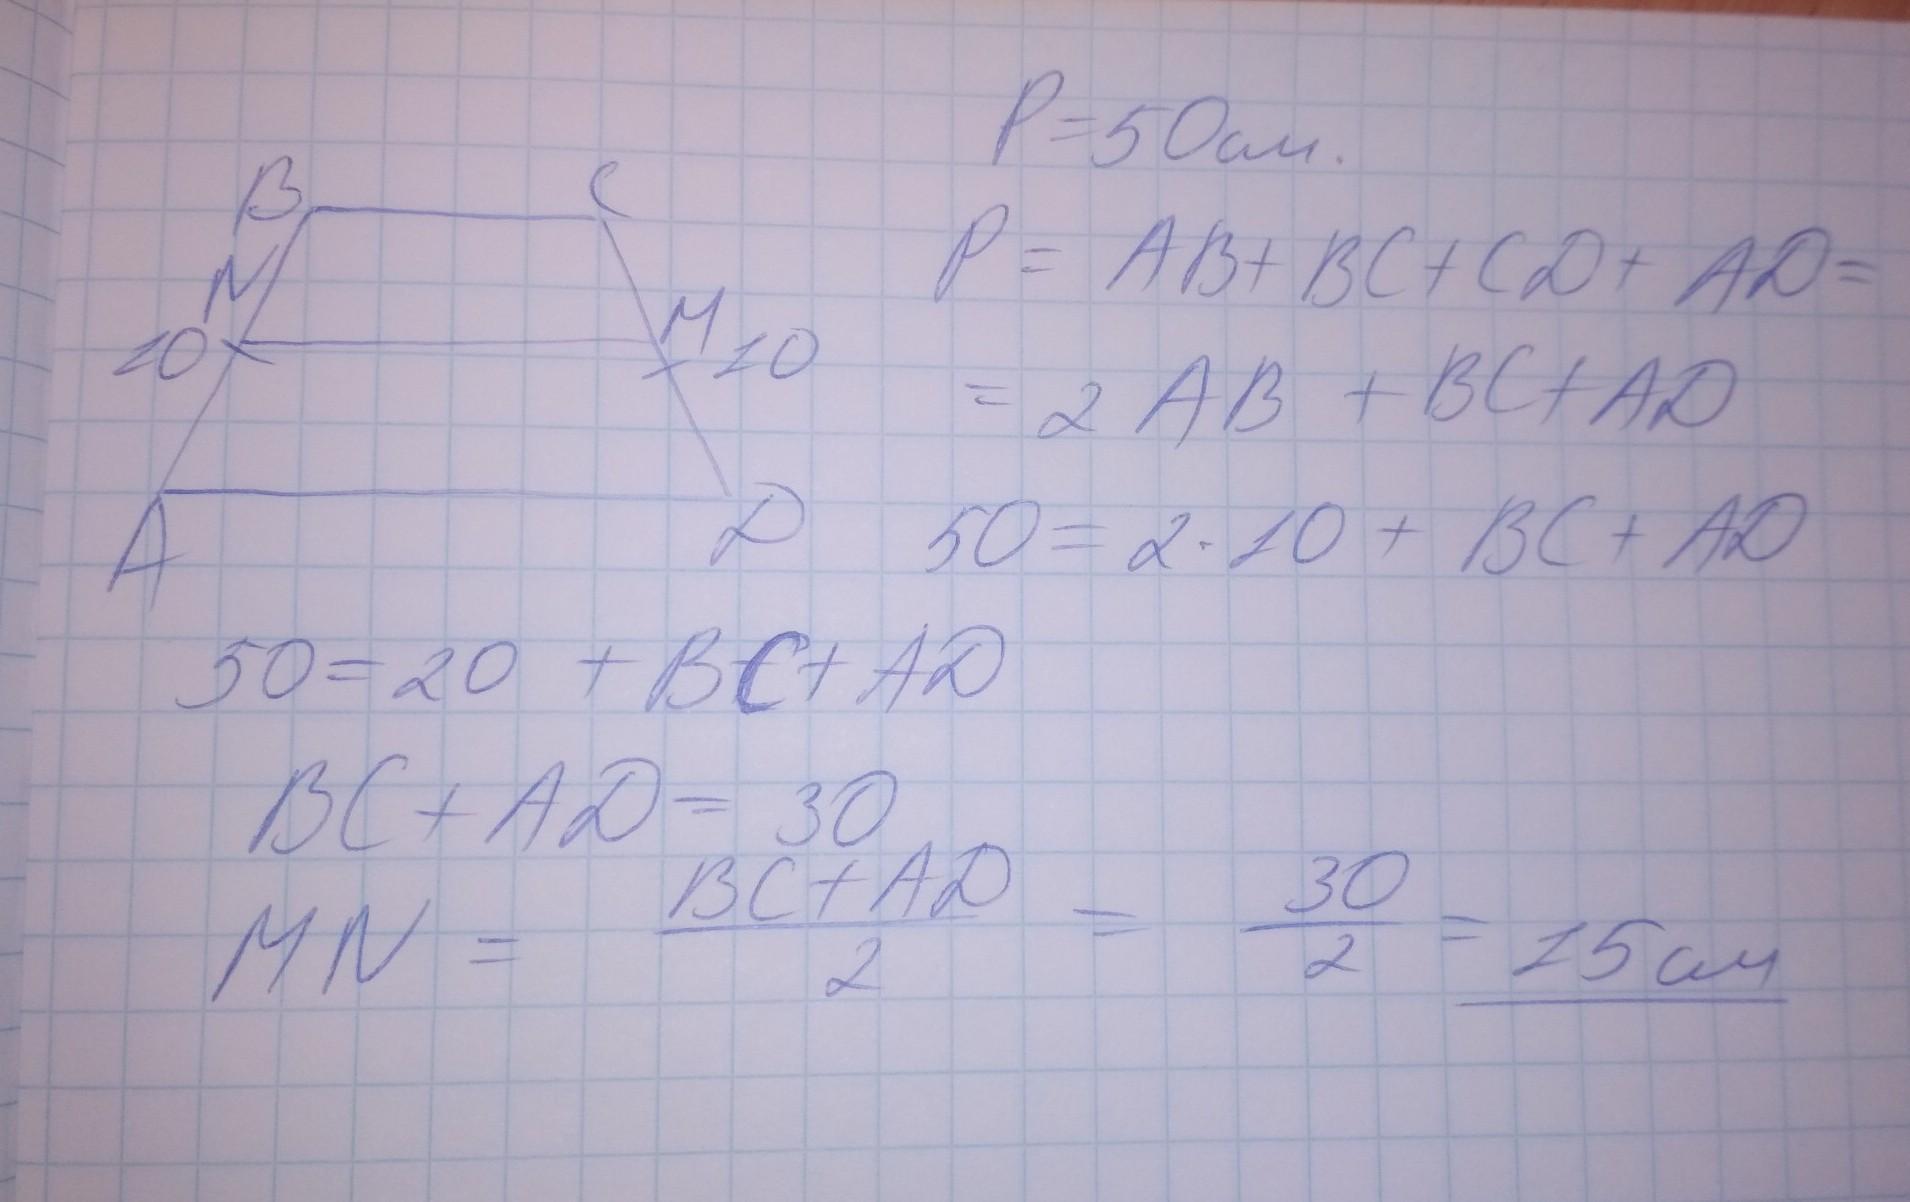 P=50см.
B C
N M
10 10
A D
P = AB+BC+CD+AD=
= 2AB + BC+AD
50=2·10+BC+AD
50=20+BC+AD
BC+AD=30
MN = \frac{BC+AD}{2} = \frac{30}{2} = 15см